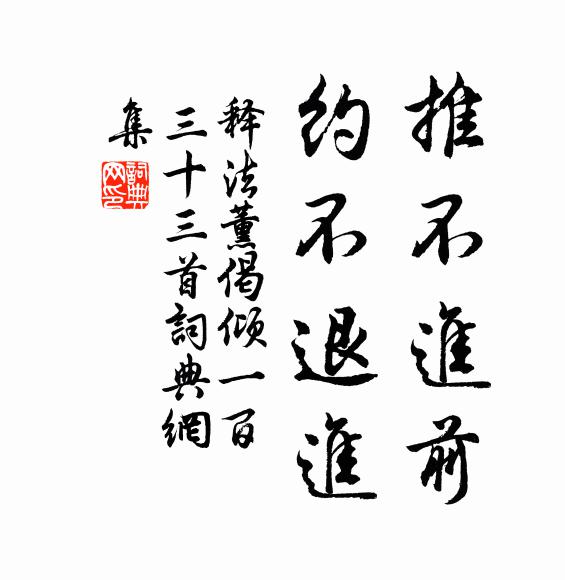 推不進前
約不退進
释法薰偈傾一百
三十三首詞典網
集
詞典網印